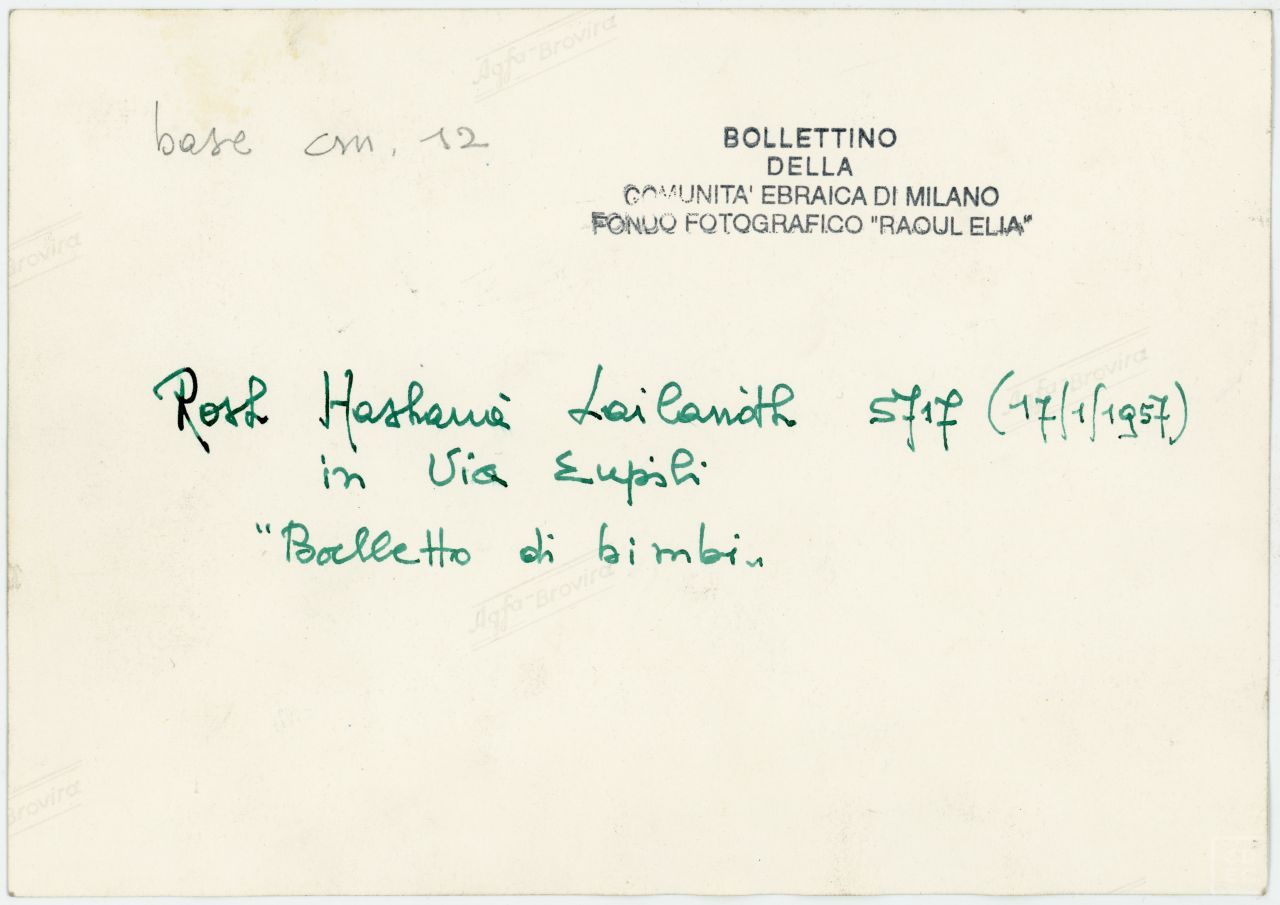 Agfa-Brovira
base cm. 12
BOLLETTINO
DELLA
COMUNITA' EBRAICA DI MILANO
FONDO FOTOGRAFICO "RAOUL ELIA"
Brovira
Agfa-Brovira
Rosh Hashanà Lailanòth 5717 (17/1/1957)
in Via Eupili
"Balletto di bimbi"
Agfa-Brovira
Brovira